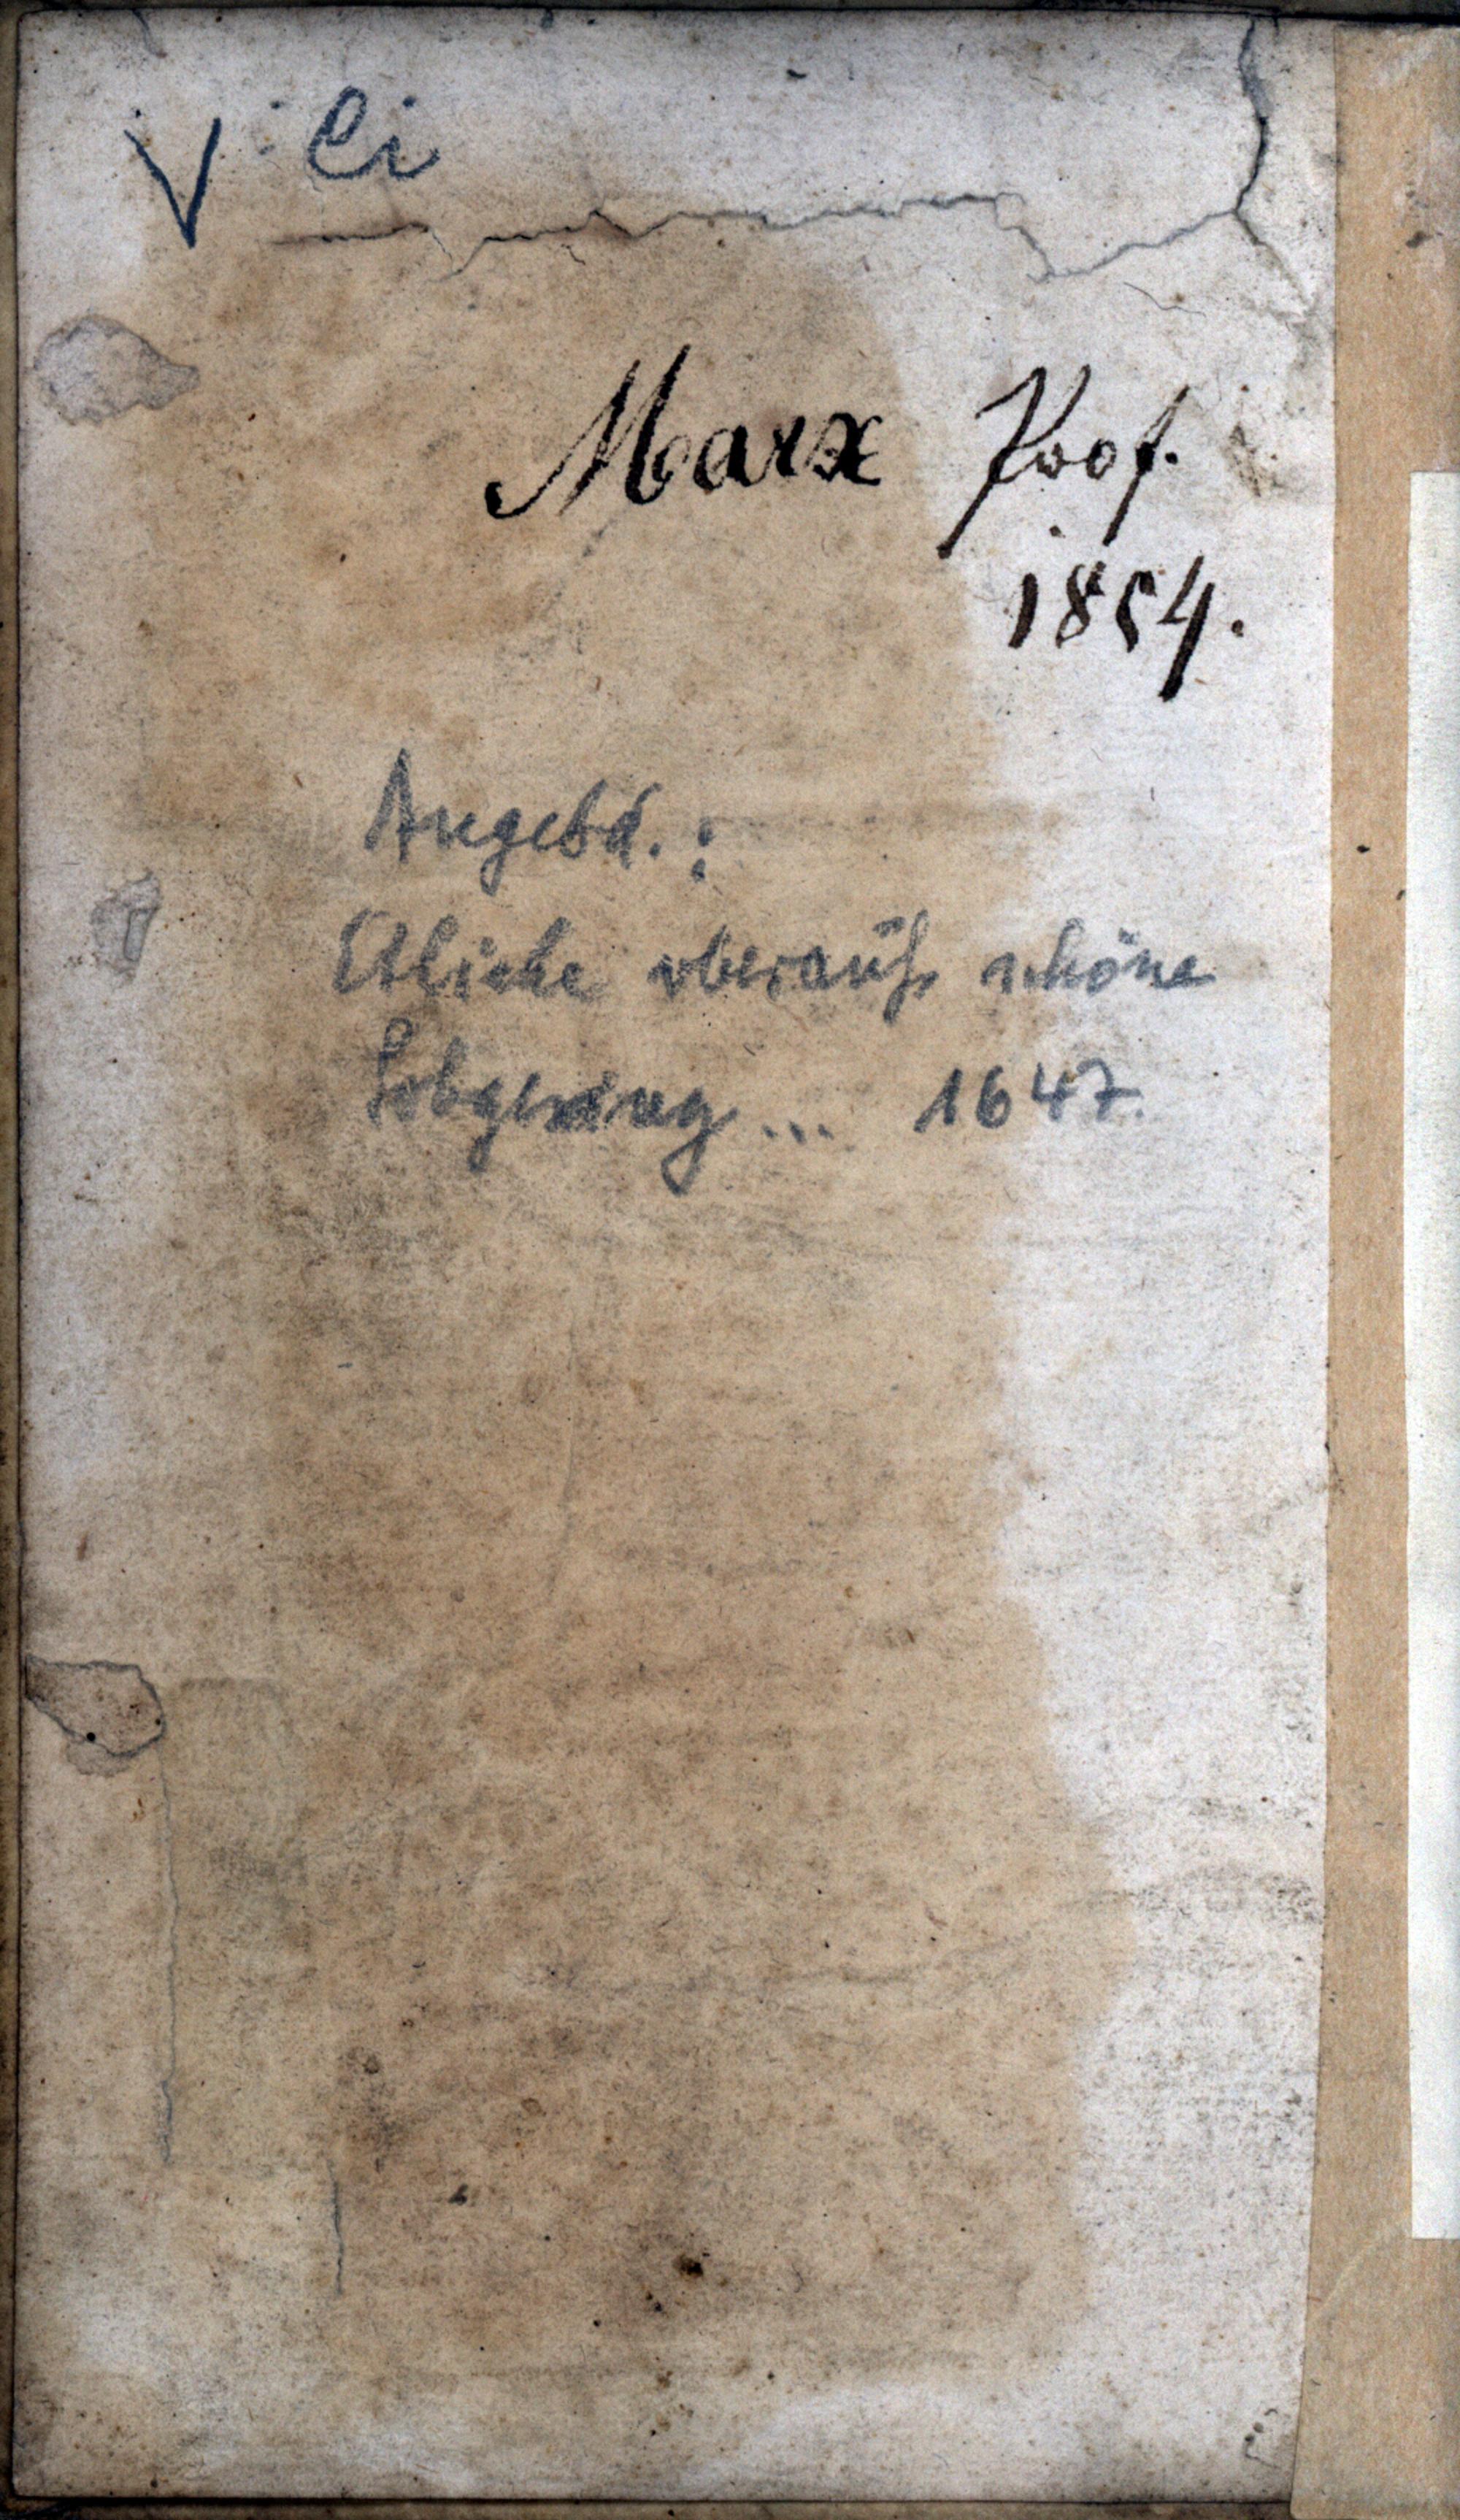 V ei
Marx Prof.
1854.
Angebd.:
Etliche vberauß schöne
Lobgesang ... 1647.